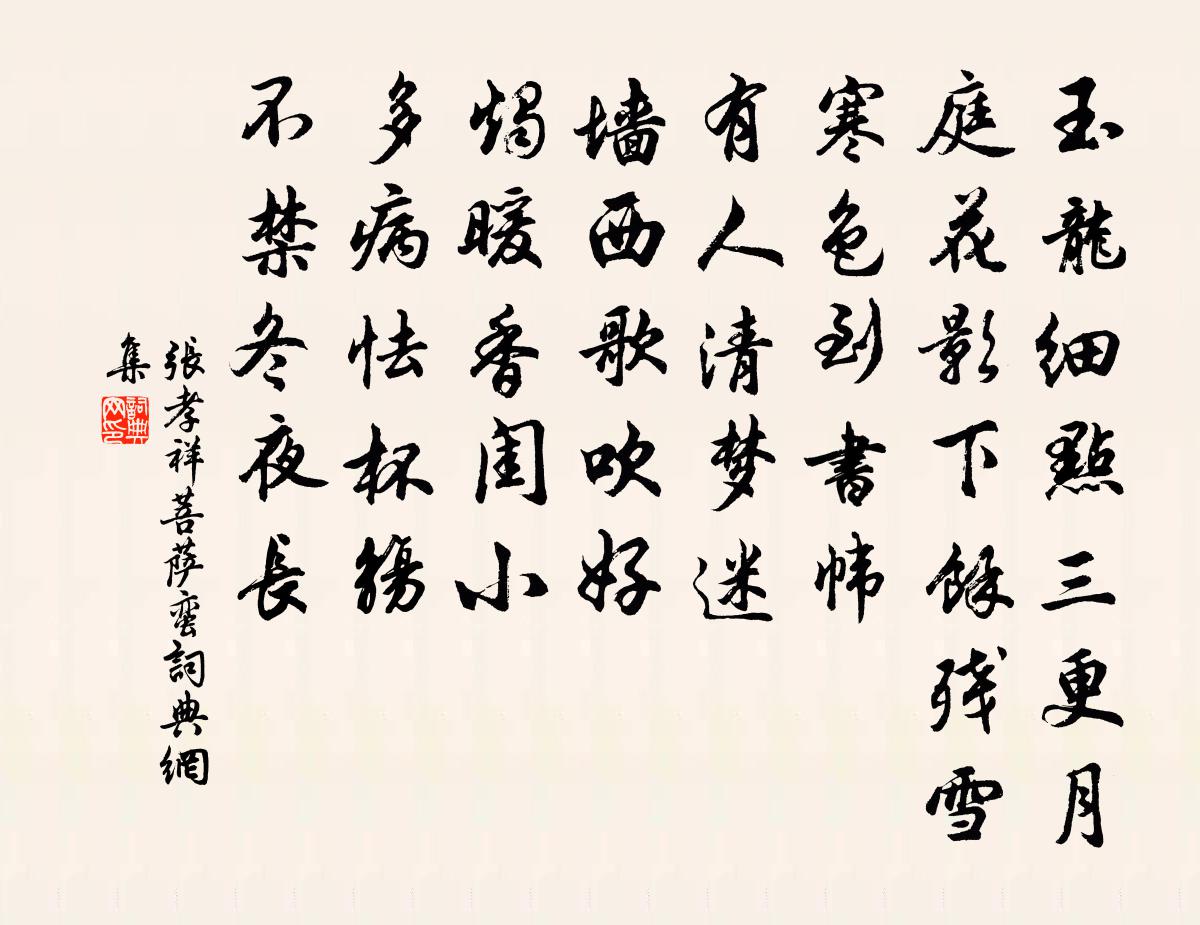 玉龍細點三更月
庭花影下餘残雪
寒色到書幃
有人清梦迷
墙西歌吹好
燭暖香闺小
多病怯杯觴
不禁冬夜長
張孝祥菩萨蛮詞典網
集
詞典网印